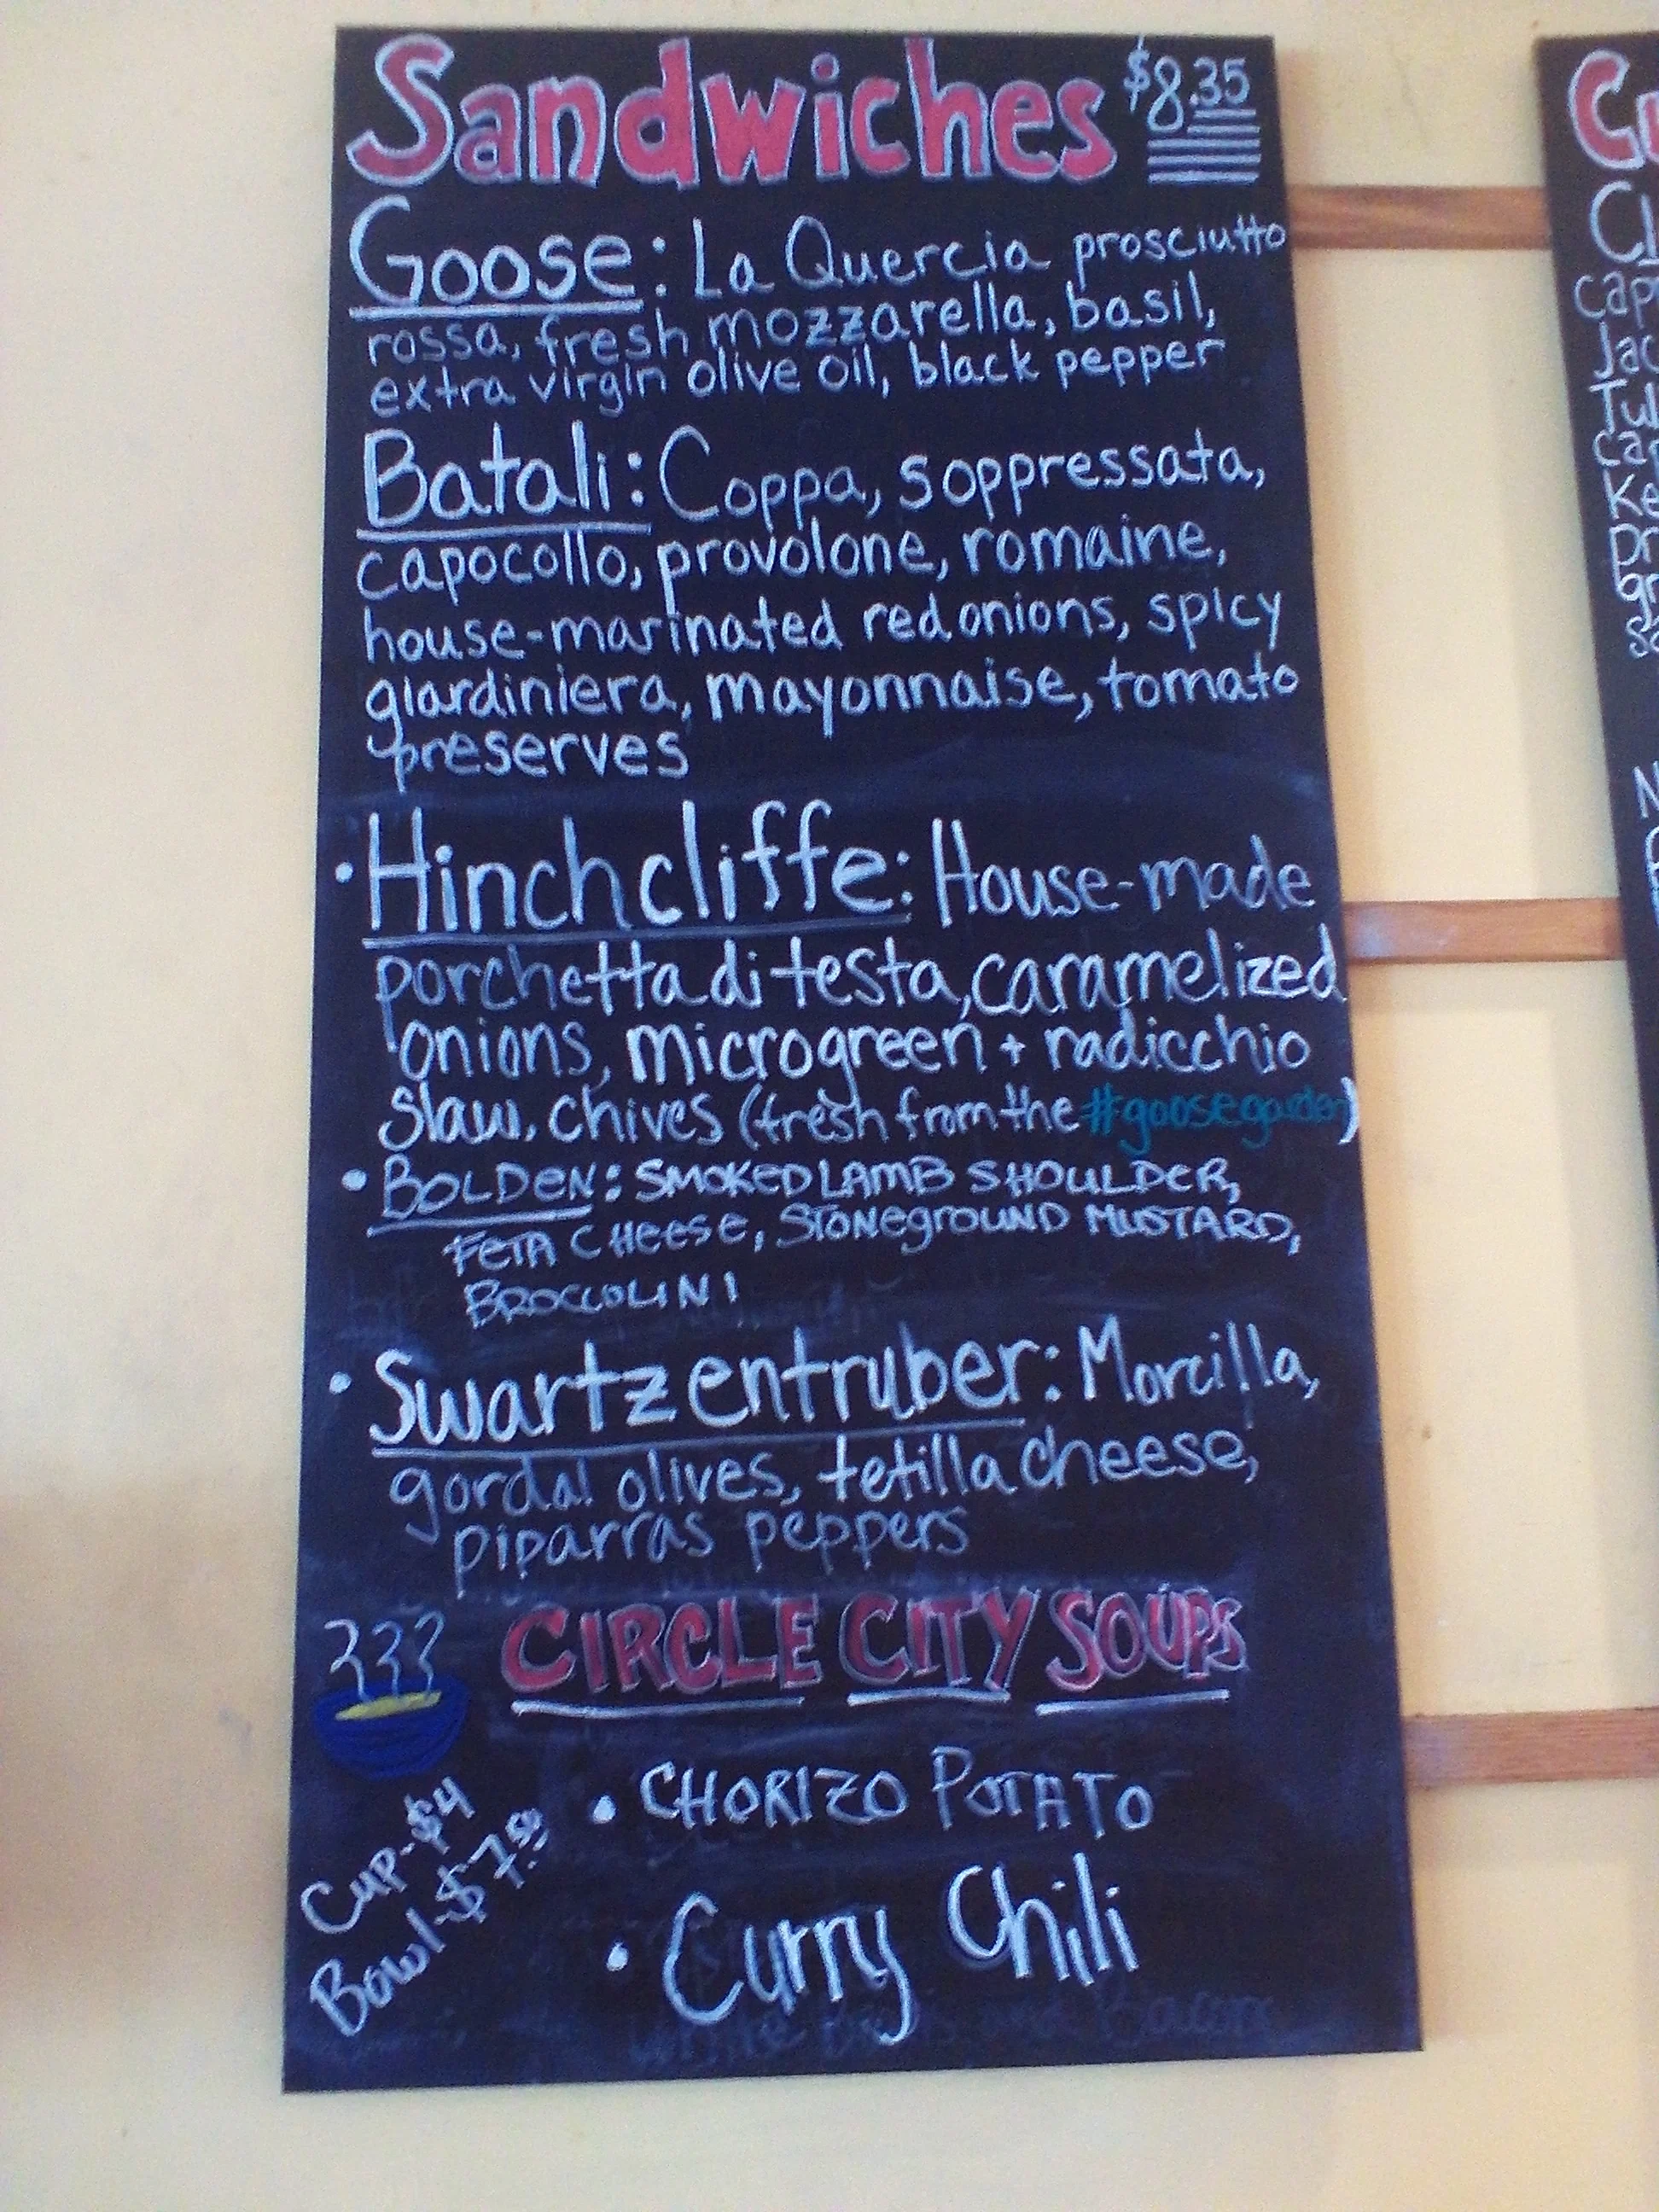 Sandwiches $8.35
Goose: La Quercia prosciutto
rossa, fresh mozzarella, basil,
extra virgin olive oil, black pepper
Batali: Coppa, soppressata,
capocollo, provolone, romaine,
house-marinated red onions, spicy
giardiniera, mayonnaise, tomato
preserves
• Hinchcliffe: House-made
porchetta di testa, caramelized
onions, microgreen + radicchio
slaw, chives (fresh from the #goosegarden)
• BOLDEN: SMOKED LAMB SHOULDER,
FETA CHEESE, STONEGROUND MUSTARD,
BROCCOLINI
• Swartzentruber: Morcilla,
gordal olives, tetilla cheese,
piparras peppers
CIRCLE CITY SOUPS
Cup-$4
Bowl-$7.50
• CHORIZO POTATO
• Curry Chili